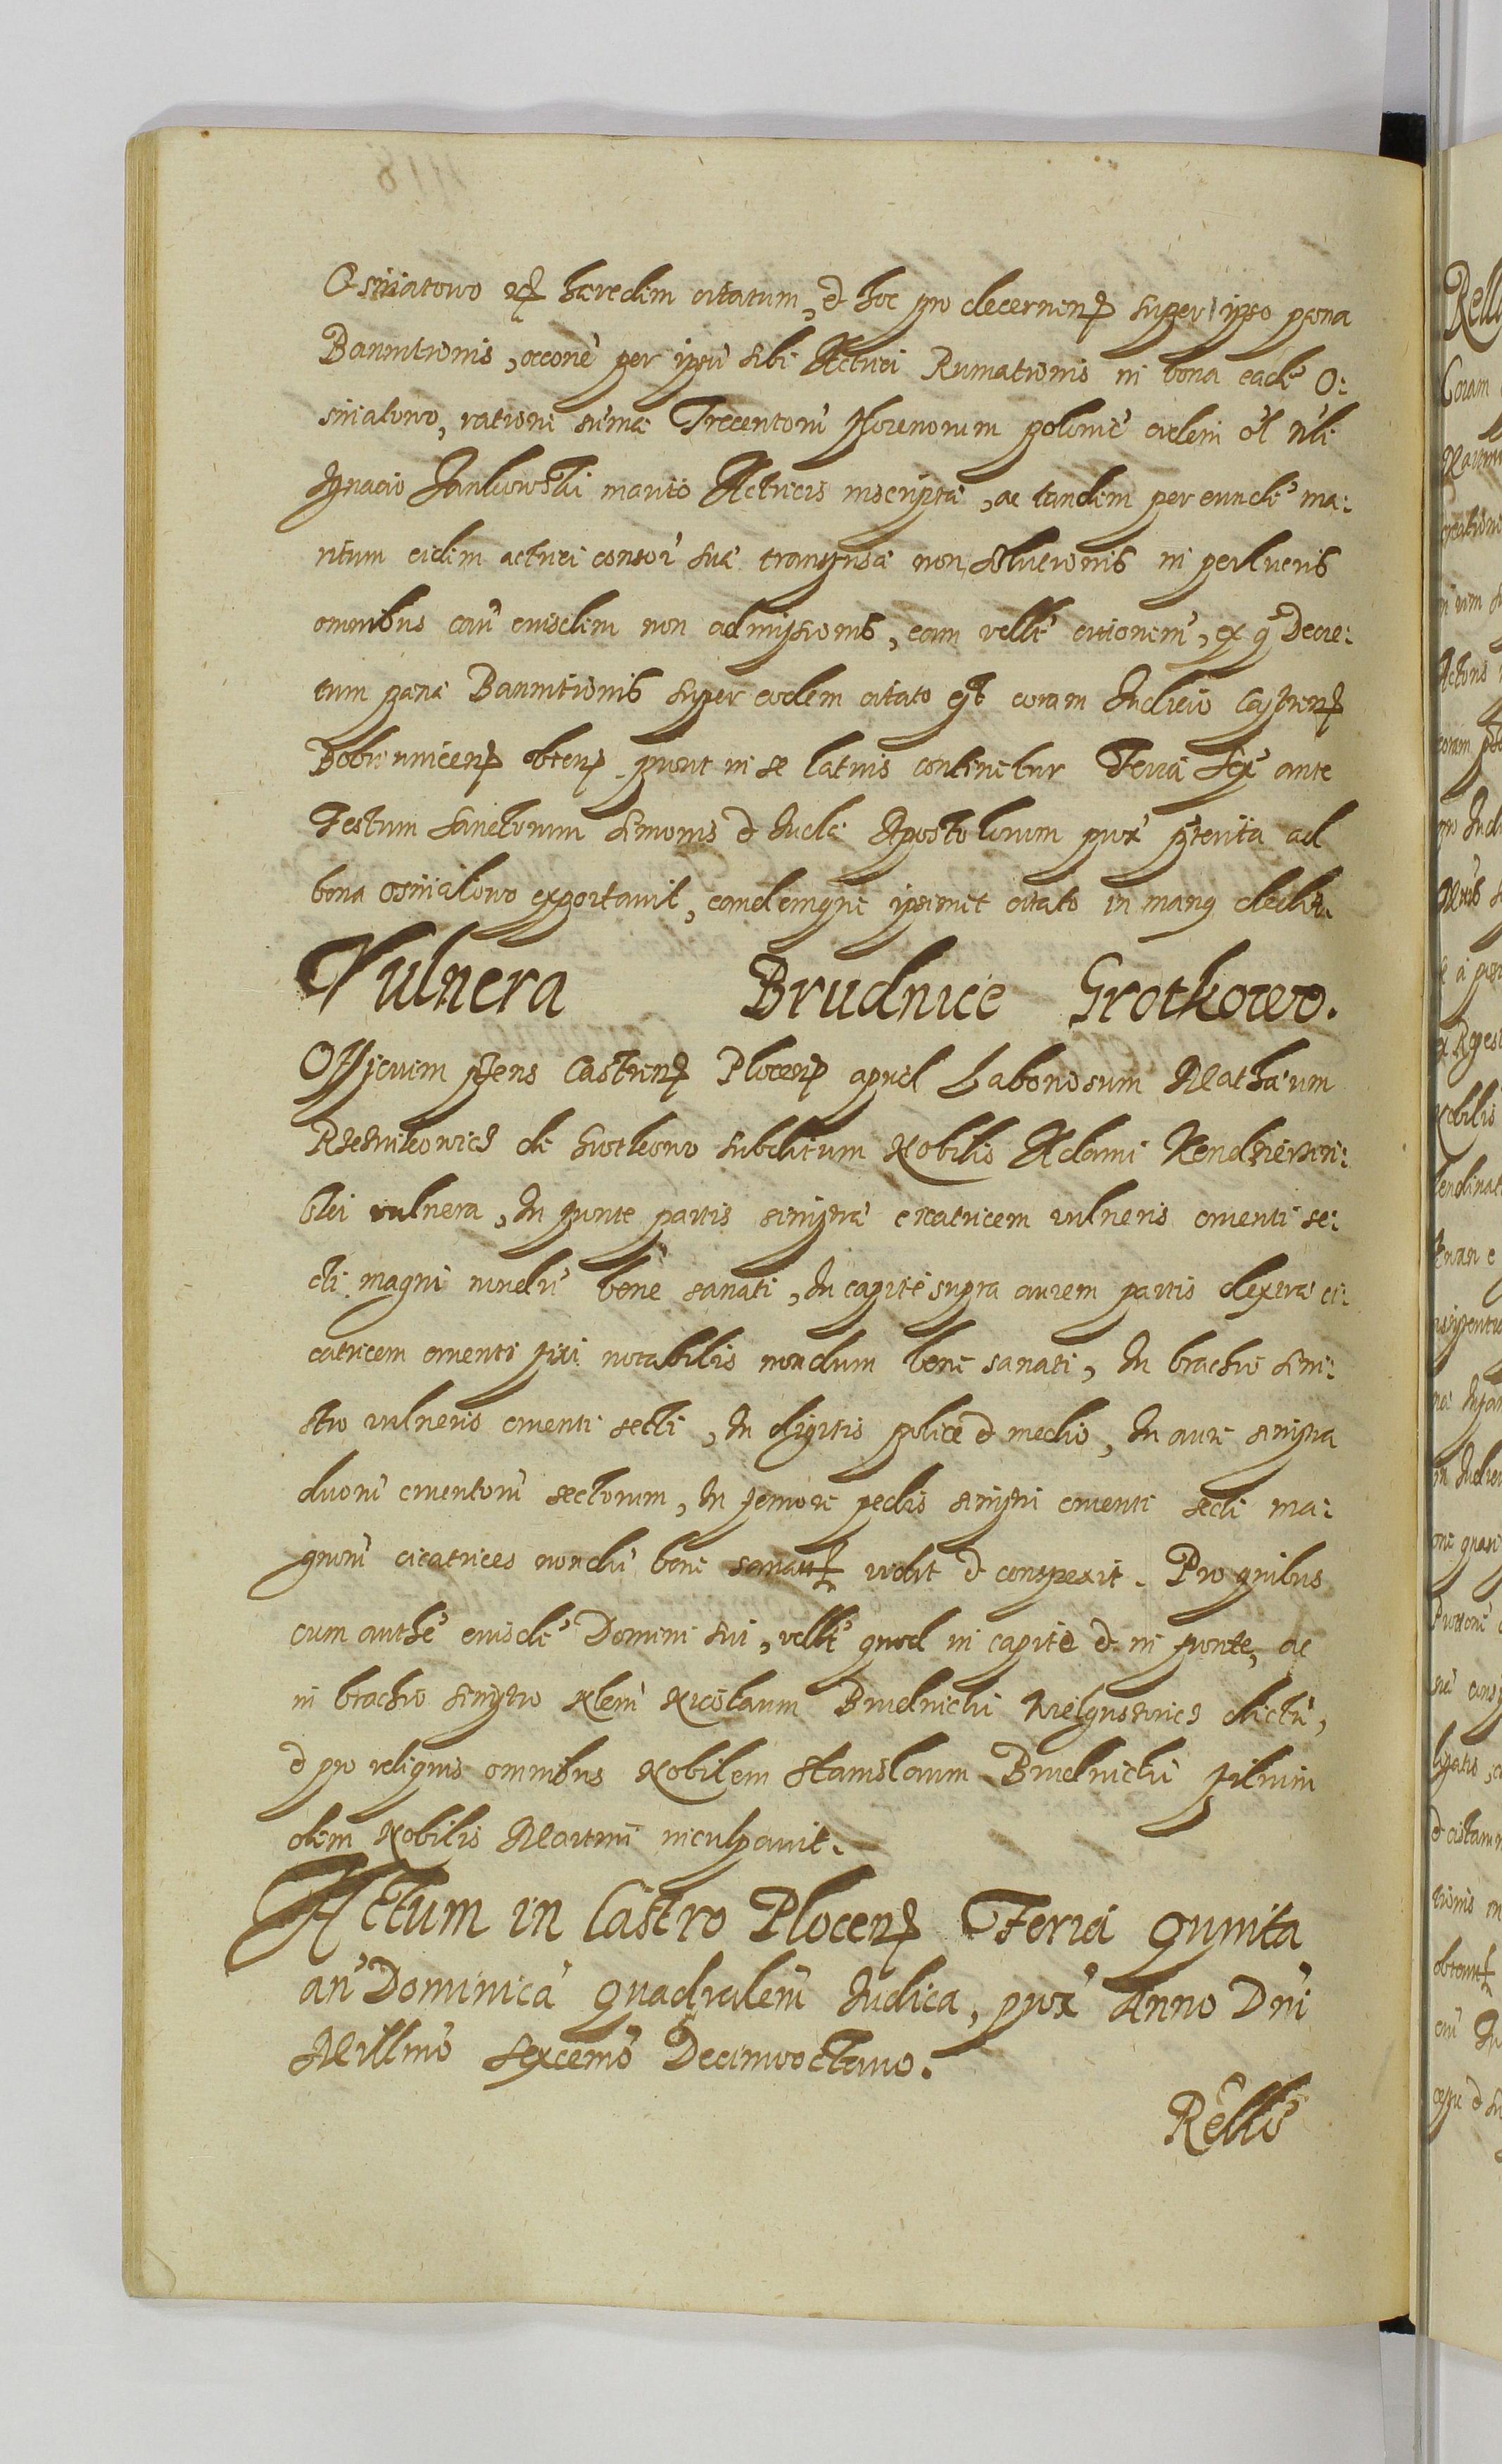 Osniatowo ꝛꝑ hæredem citatum, & hoc pro decernenꝑ super ipso pæna
Bannitionis, occone per ipsũ sibi Actrici Rumationis in bona eadẽ O:
sniatowo, ratione sum̃æ Trecentorũ florenorum polonic̃ eidem ol̃ Nb̃li
Ignacio Jankowski marito Actricis inscriptæ, ac tandem per eundẽ ma:
ritum eidem actrici consor̃ suæ transfusæ non solutionis in perlucris
omnibus cau eiusdem non admissionis, eam velle citionem̃, ex q̃ Decre:
tum pænæ Bannitionis super eodem citato est coram Iudicio Castrenꝑ
Bobrownicenꝑ obtenꝑ prout in se latius continetur Feria sex̃ ante
Festum Sanctorum Simonis & Iudæ Apostolorum prox̃ præterita ad
bona Osniatowo exportavit, eandemque ipsimet citato in manꝯ dedit.
Vulnera Brudnice Grotkowo.
Officium p̃sens Castrenꝑ Plocenꝑ apud Laboriosum Mathæum
de Grotkowo subditum Nobilis Adami Kendzierzin:
ski vulnera, In fronte partis sinistræ cicatricem vulneris cruenti se:
cti magni nondũ bene sanati, In capite supra aurem partis dextræ ci:
catricem cruenti fixi notabilis nondum bene sanati, In brachio sini:
stro vulneris cruenti secti, In digitis police & medio, In aure sinistra
duorũ cruentorũ sectorum, In femore pedis sinistri cruenti secti ma:
gnorũ cicatrices nondũ bene sanattꝝ vidit & conspexit. Pro quibus
cum authẽ eiusdẽ Domini sui, velle quod in capite & in fronte, ac
in brachio sinistro Nlem̃ Nicolaum Brudnicki Wielgusowicz dictũ,
& pro reliquis omnibus Nobilem Stanislaum Brudnicki filium
olim Nobilis Martini inculpavit.
Actum in Castro Plocenꝑ Feria quinta
an̄ Dominicã quadralem̃ Iudica, prox̃ Anno Dni
Millmõ Sexcem̃o Decimooctavo.
Rellio